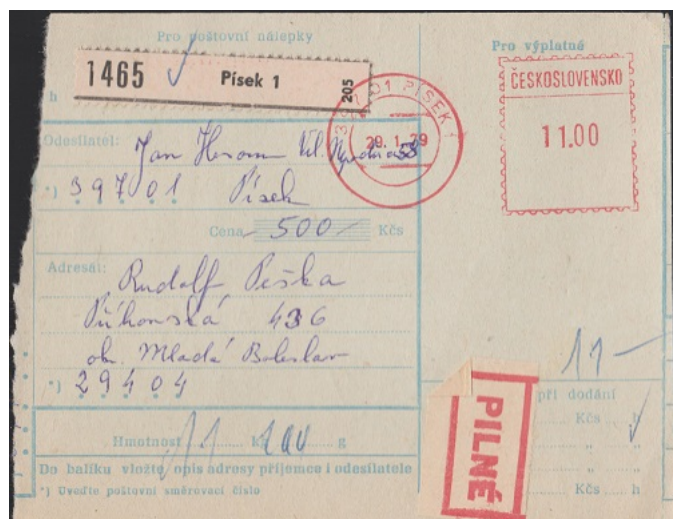 Pro poštovní nálepky
Pro výplatné
1465 Písek 1 205
h
397 01 PÍSEK 1
29. 1. 79
ČESKOSLOVENSKO
11.00
Odesílatel:
Jan
*) 39701 Písek
Cena 500 Kčs
Adresát:
Rudolf Peška
436
ok. Mladá Boleslav
*) 29404
11-
při dodání
Kčs h
" "
" "
Kčs h
PILNÉ
Hmotnost 11 kg 100 g
Do balíku vložte opis adresy příjemce i odesílatele
*) Uveďte poštovní směrovací číslo